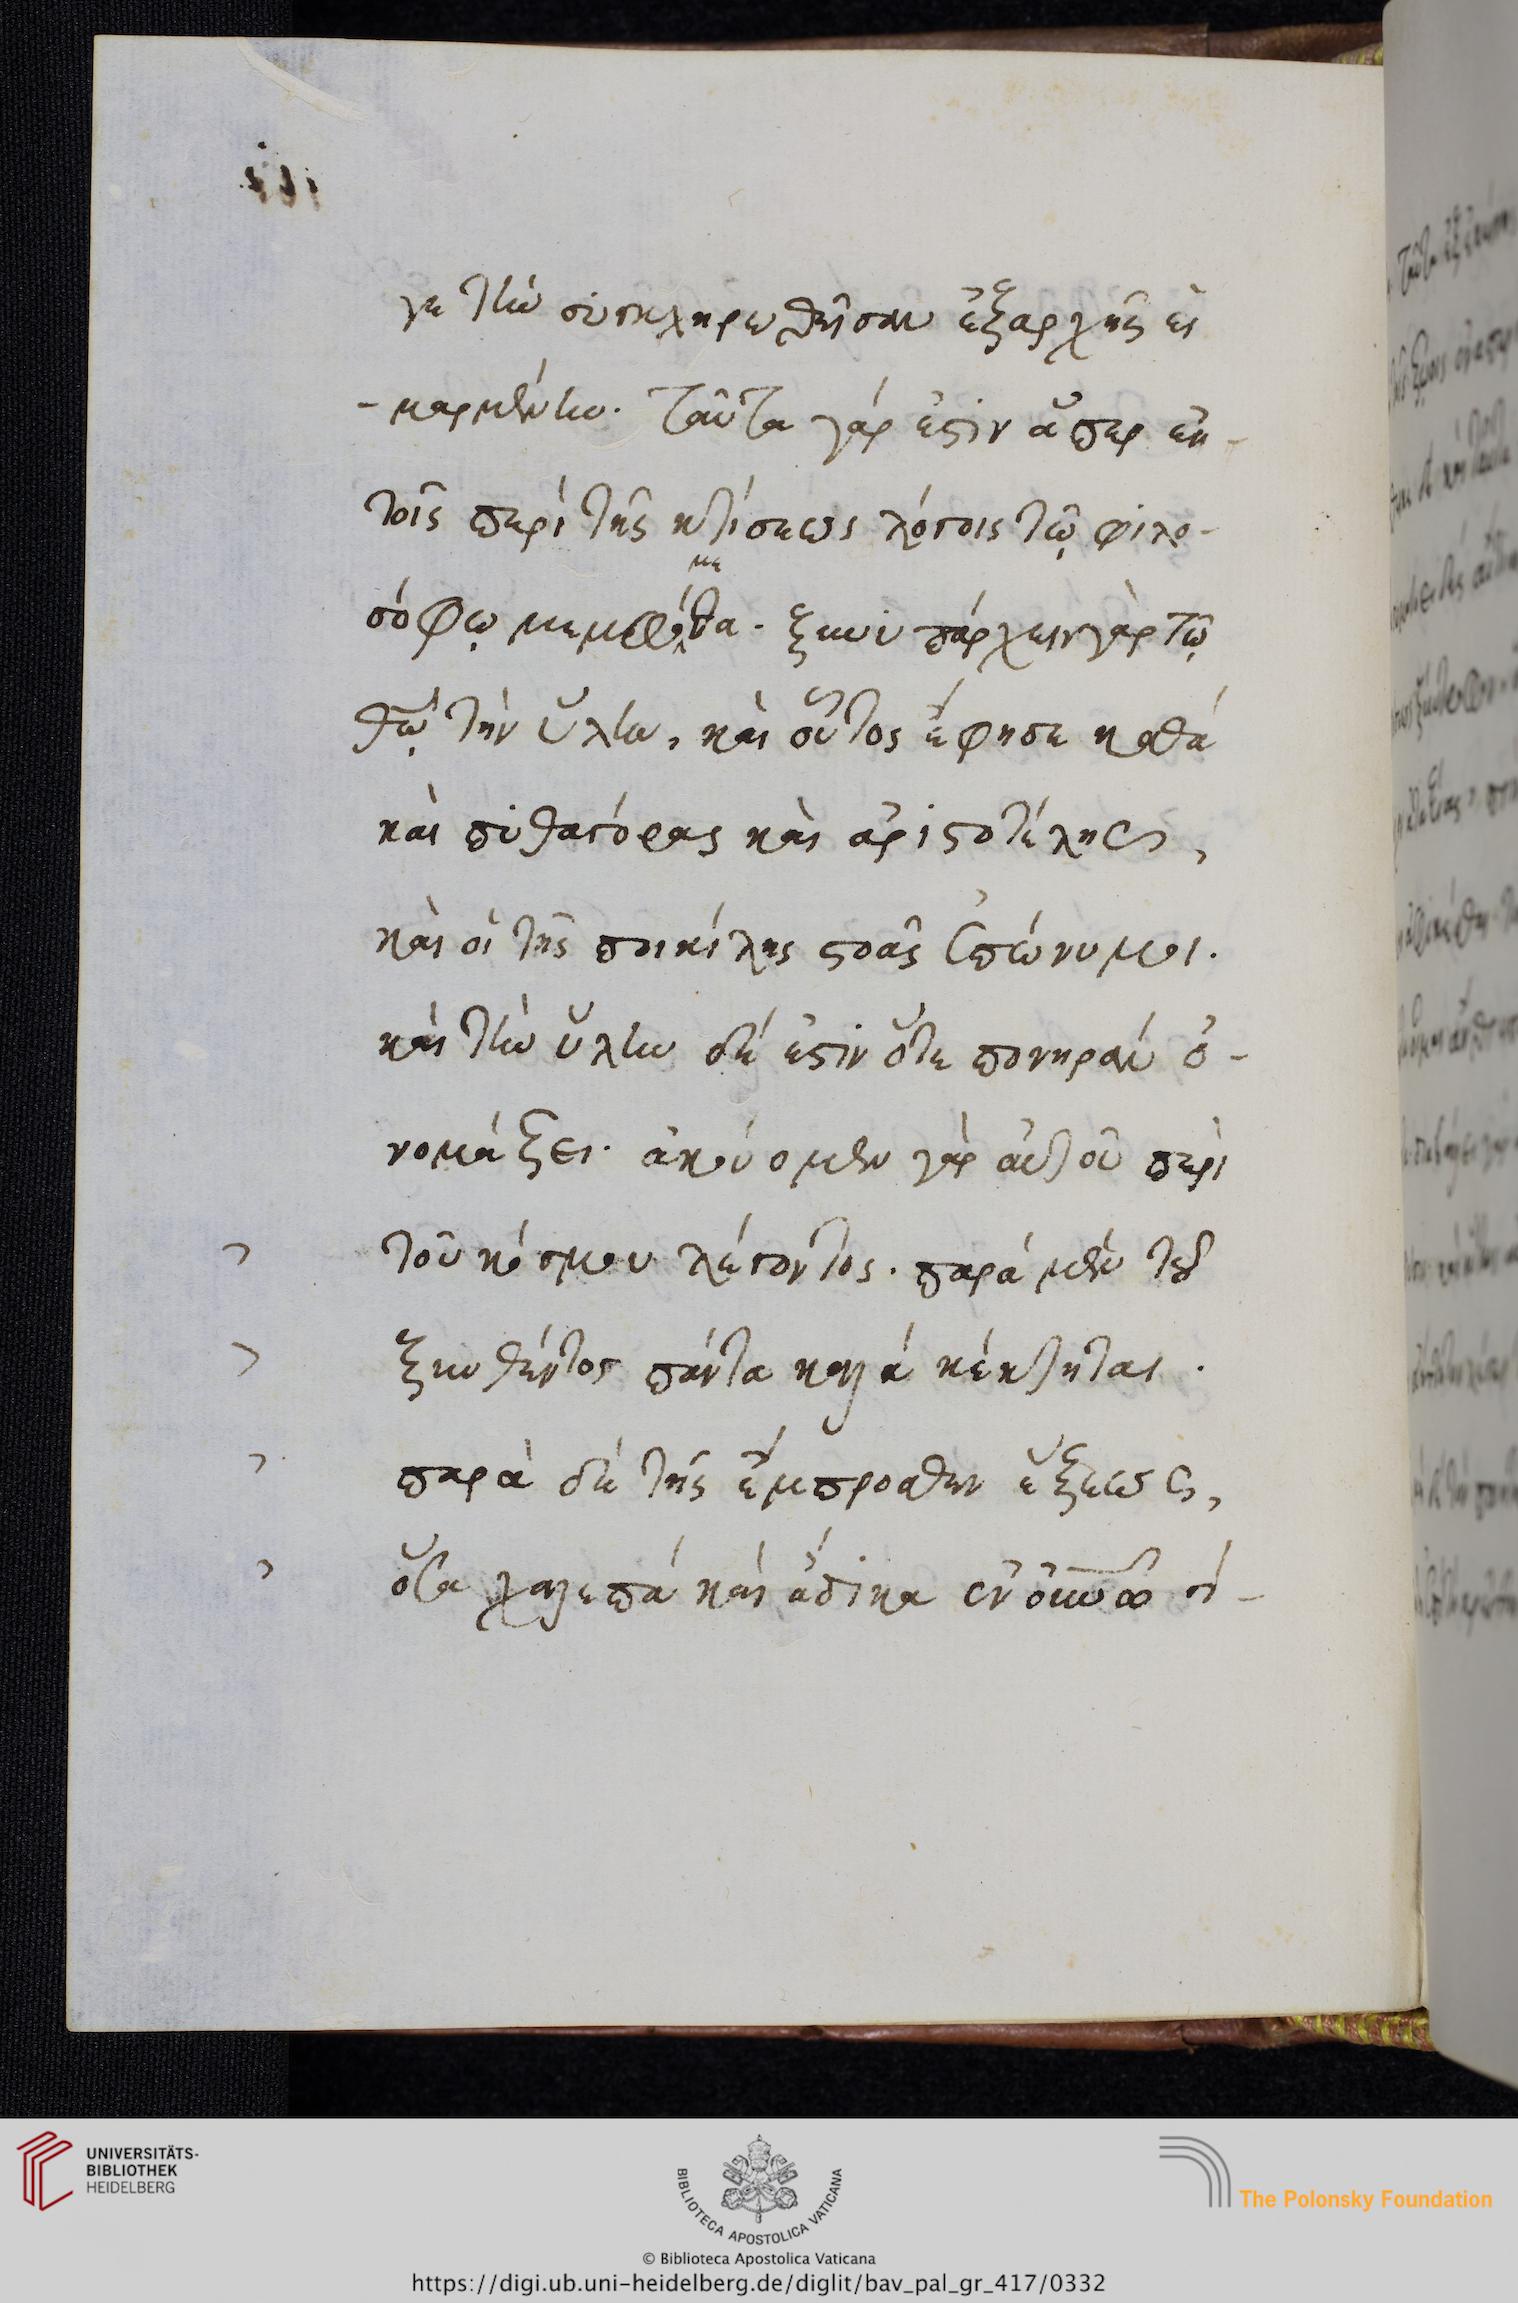 γε τὴν συγκληρωθεῖσαν ἐξαρχῆς εἱ
-μαρμένην. ταῦτα γάρ ἐστιν ἅπερ ἐν-
τοῖς περὶ τῆς κτίσεως λόγοις τῷ φιλο-
σόφῳ μεμφόμεθα. ξυνυπάρχειν γὰρ τῷ
θεῷ τὴν ὕλην, καὶ οὗτος ἔφησε καθά
καὶ πυθαγόρας καὶ ἀριστοτέλης,
καὶ οἱ τῆς ποικίλης στοᾶς ἐπώνυμοι.
καὶ τὴν ὕλην δέ ἐστιν ὅτε πονηρὰν ὀ-
νομάζει. ἀκούομεν γὰρ αὐτοῦ περὶ
τοῦ κόσμου λέγοντος. παρὰ μὲν τοῦ
ξυνθέντος πάντα καλὰ κέκτηται.
παρὰ δὲ τῆς ἔμπροσθεν ἕξεως,
ὅσα χαλεπὰ καὶ ἄδικα ἐν οὐνῷ
UNIVERSITÄTS-
BIBLIOTHEK
HEIDELBERG
BIBLIOTECA APOSTOLICA VATICANA
The Polonsky Foundation
© Biblioteca Apostolica Vaticana
https://digi.ub.uni-heidelberg.de/diglit/bav_pal_gr_417/0332